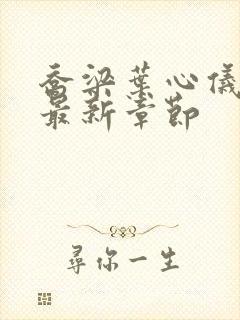 乔梁葉心儀
最新章節
尋你一生